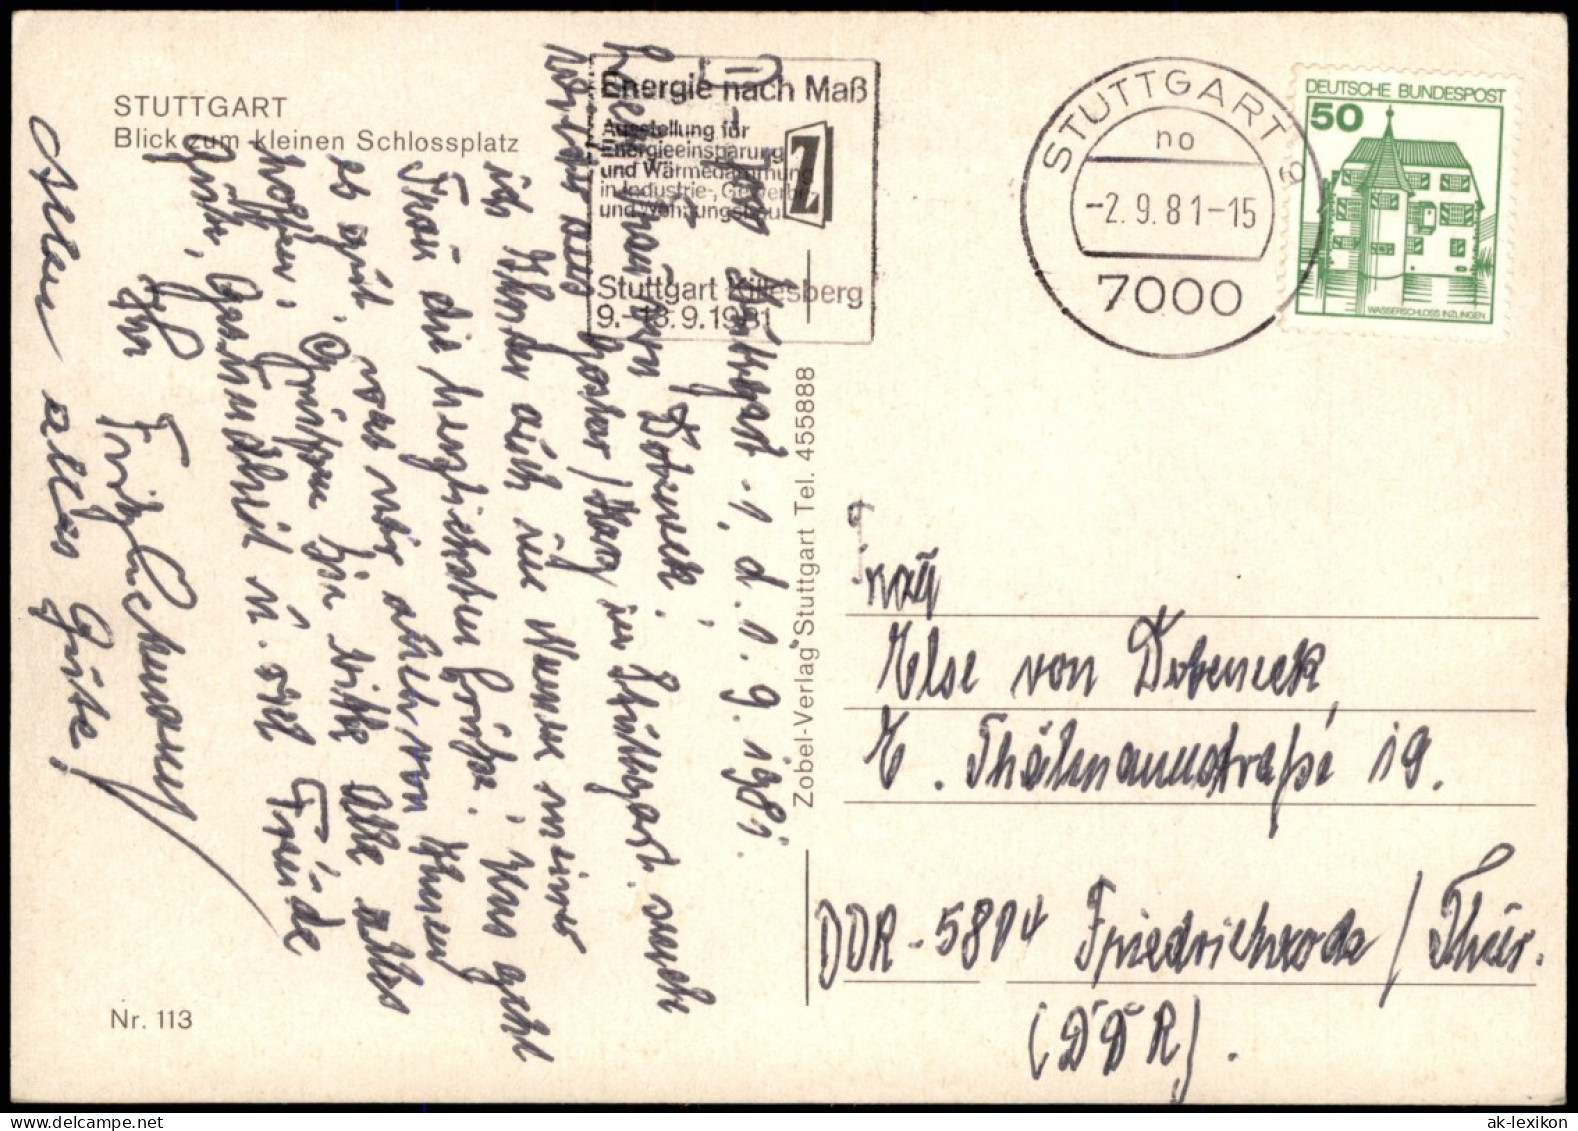 STUTTGART
Blick zum kleinen Schlossplatz
Energie nach Maß
Ausstellung für
Energieeinsparung
und Wärmedämmung
in Industrie-, Gewerbe-
und Wohnungsbau
Stuttgart Killesberg
9.-13.9.1981
STUTTGART
no
-2.9.81-15
7000
DEUTSCHE BUNDESPOST
50
WASSERSCHLOSS INZLINGEN
Stuttgart -1, d. 1. 9. 1981.
Liebe Frau von Dobeneck!
/Harz in Stuttgart
ich Ihnen auch im Namen meiner
Frau die herzlichsten Grüße. Uns geht
es gut, was wir auch von Ihnen
hoffen. Grüßen Sie bitte alle
Gute, Gesundheit u. viel Freude
Ihr
alles Gute!
Zobel-Verlag Stuttgart Tel. 455888
Frau
Else von Dobeneck
E. Thälmannstraße 19.
DDR-5804 Friedrichroda / Thür.
(DDR).
Nr. 113
ak-lexikon